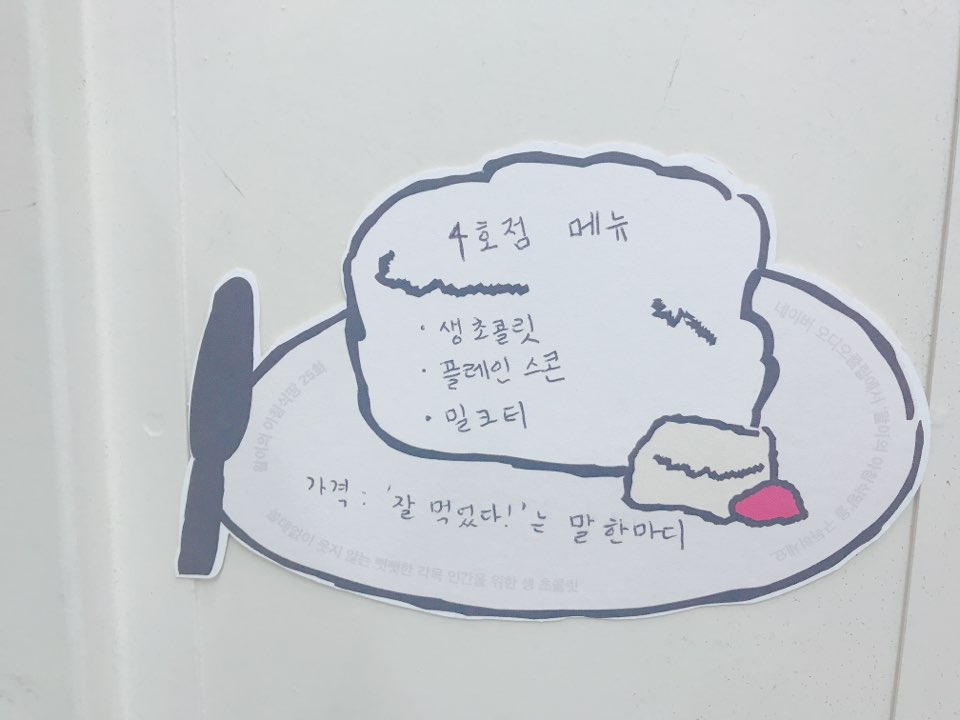 4호점 메뉴
· 생초콜릿
· 플레인 스콘
· 밀크티
가격 : '잘 먹었다!'는 말 한마디
아침식당 25회
쓸데없이 웃지 않는 뻣뻣한 각목 인간을 위한 생 초콜릿
네이버 오디오클립에서 아침식당을 구독하세요.